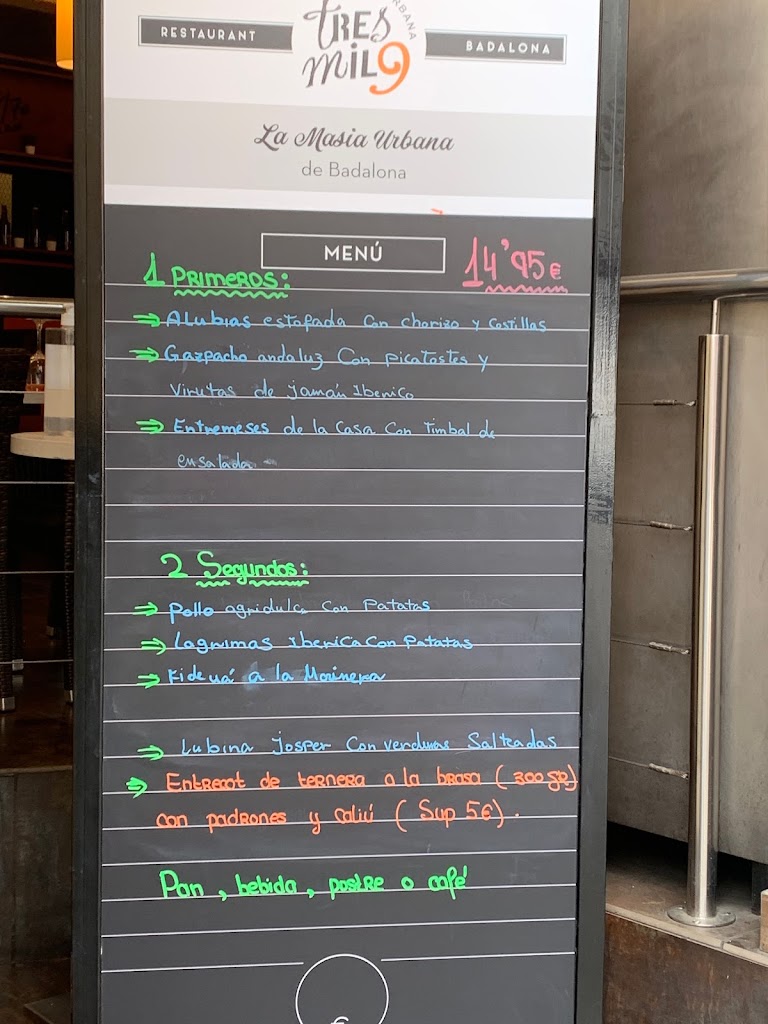 RESTAURANT
TRES MIL9
URBANA
BADALONA
La Masia Urbana
de Badalona
MENÚ
14'95€
1 PRIMEROS:
⇒ ALUBIAS estafada Con Chorizo y Costillas
⇒ Gazpacho andaluz Con PICATOSTES y
Virutas de jamón Iberico
⇒ Entremeses de la Casa Con Timbal de
ensalada -
2 Segundos:
⇒ Pollo agridulce Con PATATAS
⇒ Lagrimas Iberica Con PATATAS
⇒ Fideuá a la Marinera
⇒ Lubina Josper Con verduras Salteadas
⇒ Entrecot de ternera a la brasa (300gr)
con padrones y caliú (Sup 5€).
Pan, bebida, postre o café
€